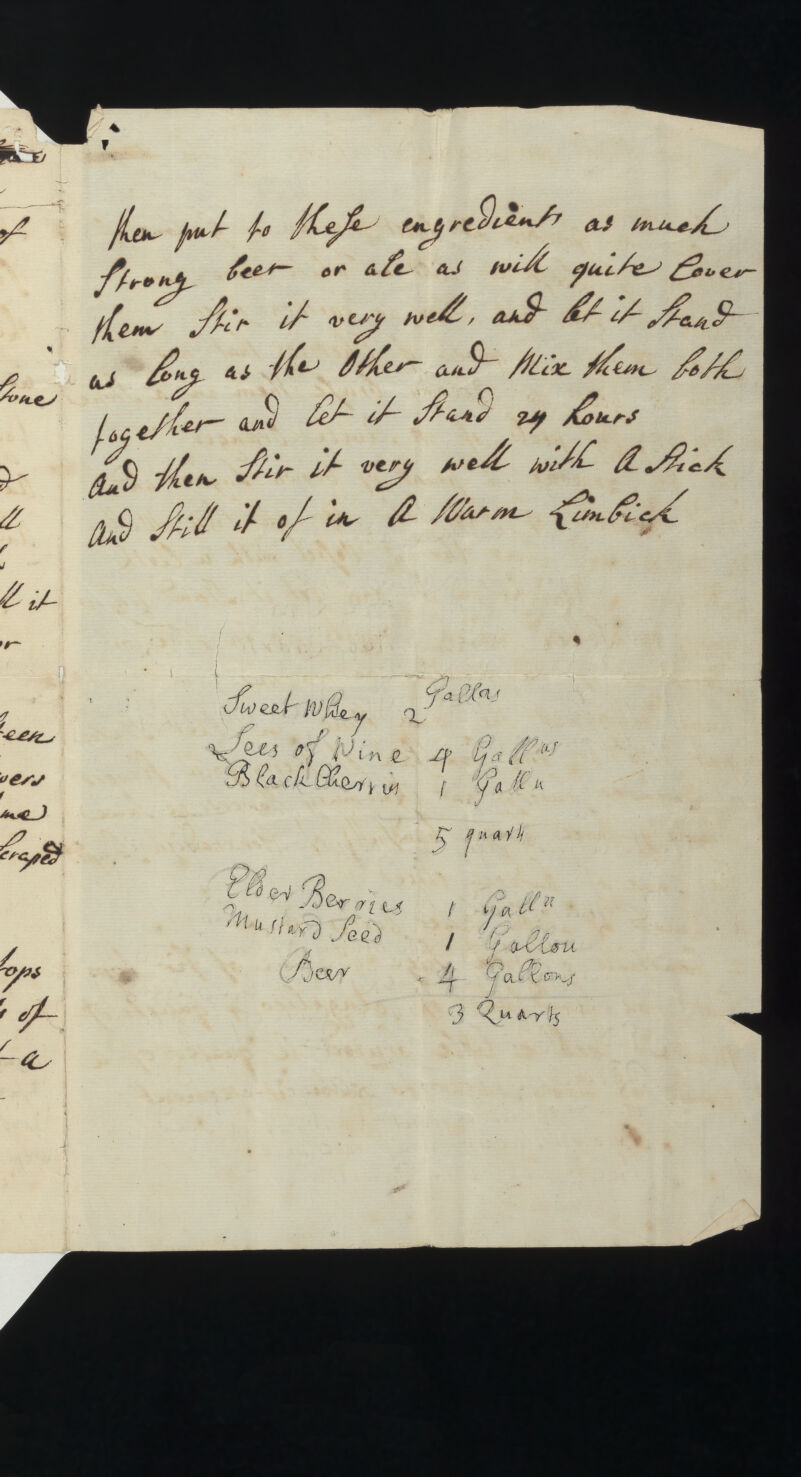 then put to these engredients as much
Strong beer or ale as will quite Cover
them Stir it very well, and let it Stand
as long as the Other and Mix them both
together and let it Stand 24 hours
And then Stir it very well with A Stick
And Still it of in A Warm Limbick
Sweet Whey 2 Gallns
Lees of Wine 4 Gallns
Black Cherris 1 Galln
5 quarts
Elder Berries 1 Galln
Mustard Seed 1 Gallon
Beer 4 Gallons
3 Quarts
of
Stone
ll
ll it
or
teen
me
Scraped
tops
of
t a